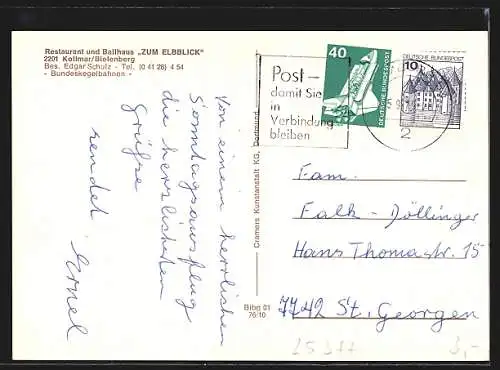 Restaurant und Ballhaus „ZUM ELBBLICK"
2201 Kollmar/Bielenberg
Bes. Edgar Schulz - Tel. (0 41 28) 4 54
- Bundeskegelbahnen -
Von einem herrlichen
Sonntagsausflug
die herzlichsten
Grüsse
sendet
Cramers Kunstanstalt KG, Dortmund
Bibe 01
76/10
Post –
damit Sie
in
Verbindung
bleiben
40
DEUTSCHE BUNDESPOST
10
DEUTSCHE BUNDESPOST
2
Fam.
Falk - Döllinger
Hans Thomastr. 15
7742 St. Georgen
3,-